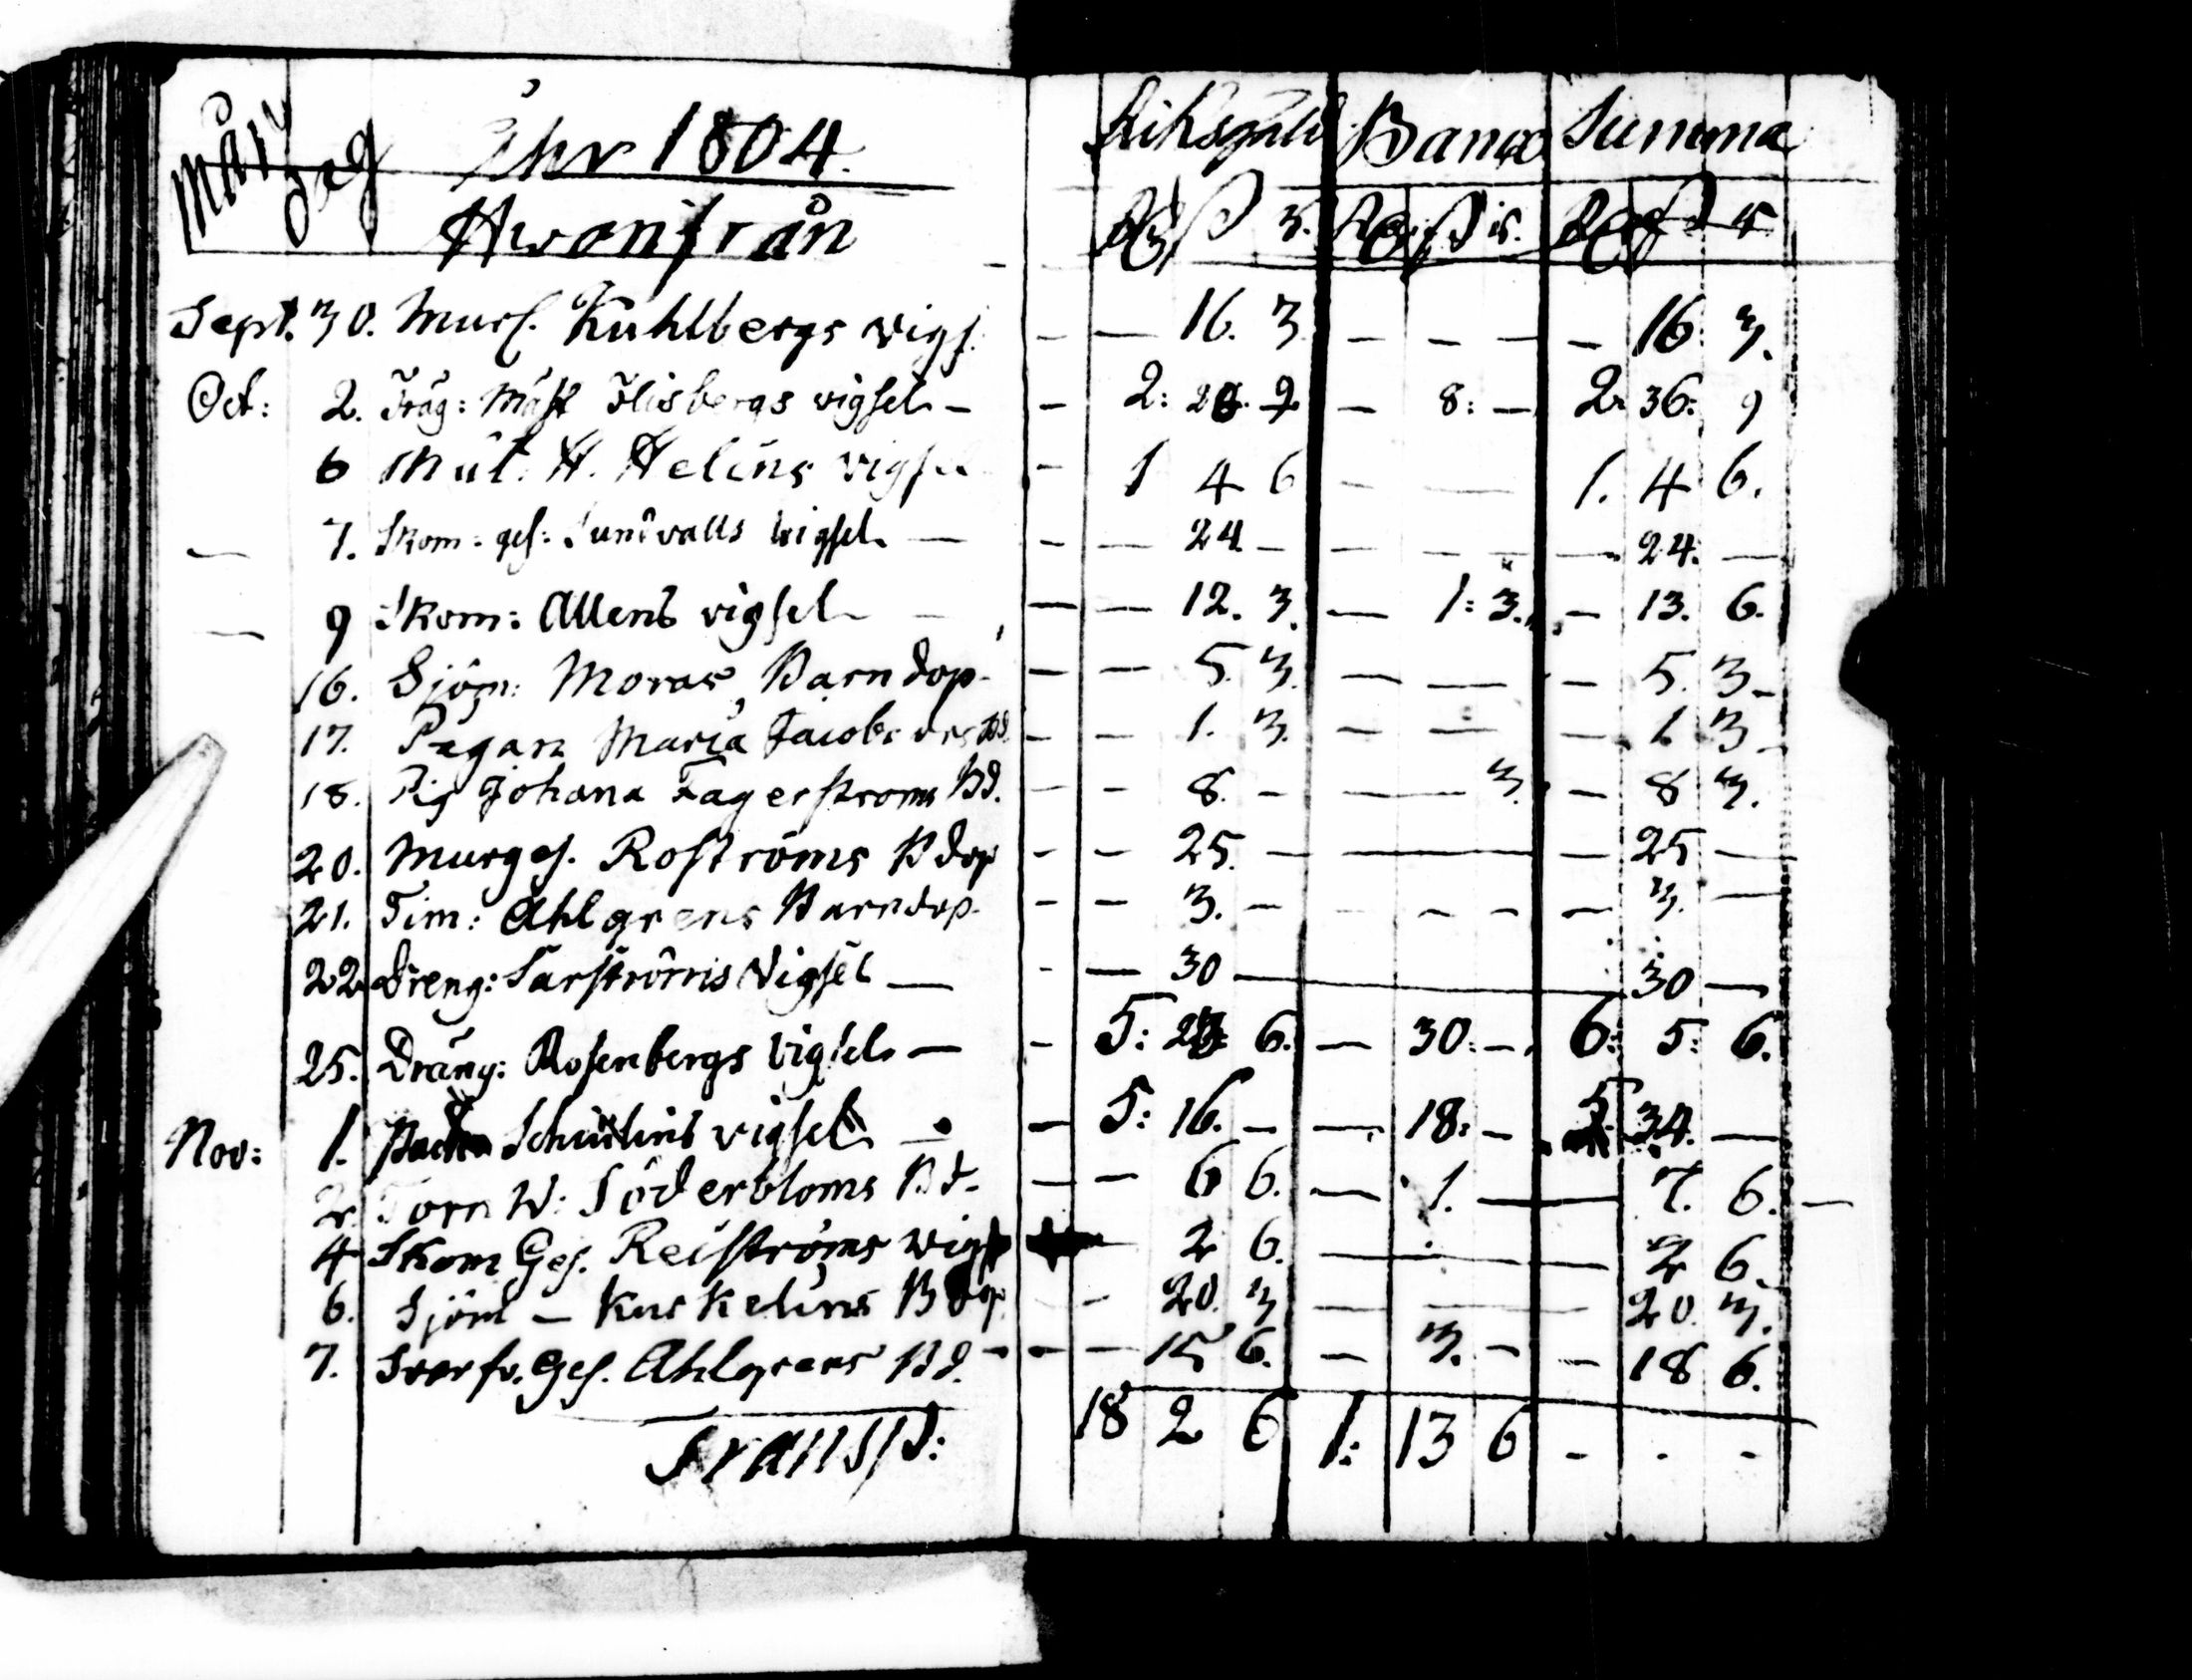 Månz dag Åhr 1804. Riksgäld Banco Summa
Hwanifrån Rd ß r. Rd ß r. Rd ß r
Sept. 30. Murg. Kuhlbergs vigs. — — 16. 3 — — — — 16. 3.
Oct: 2. Träg: Mäst Flisbergs vigsel — — 2: 28. 9 — 8: — 2. 36: 9
6 Mât. H. Helins vigsel — 1 4 6 — — 1. 4 6.
— 7. Skom: ges: Sundvalls wigsel — — — 24 — — — — — 24. —
— 9 Skom: Allens vigsel — — — 12. 3. — 1: 3. — 13. 6.
16. Sjöm: Moras Barndop — — 5 3. — — — 5. 3 —
17. Pigan Maria Jacobs Bd. — — 1. 3. — — — 1 3 —
18. Pig Johana Fagerstroms Bd. — — 8. — — 3. — 8 3.
20. Murges. Roströms Bdop — — 25. — — — 25 —
21. Tim: Ahlgrens Barndop — — 3. — — — — — 3. —
22 Dreng: Sarströms Vigsel — — — 30 — 30 —
25. Dräng: Rosenbergs Vigsel — — 5: 23 6. — 30: — 6: 5: 6.
Nov: 1. Schülins vigsel — — 5: 16. — — 18: — 5 34. —
2. Torn W: Söderbloms Bd. — — 6 6. — 1. — 7. 6. —
4 Skom Ges. Reiströms wigs — 2 6. — — 2 6.
6. Sjöm — Kuskelins Bdop — 20. 3 — — 20. 3.
7. Svarfv. Ges. Ahlgrens Bd. — — — 15 6. — 3. — — 18 6.
Transp: 18 2 6 1: 13 6 - - -